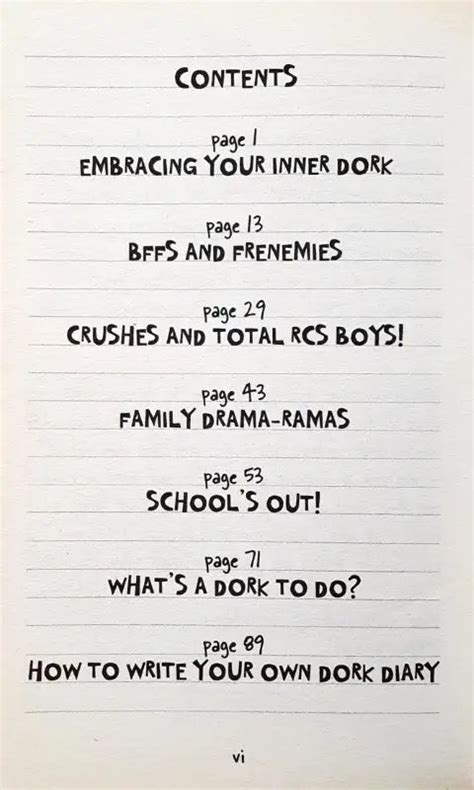 CONTENTS
page 1
EMBRACING YOUR INNER DORK
page 13
BFFS AND FRENEMIES
page 29
CRUSHES AND TOTAL RCS BOYS!
page 43
FAMILY DRAMA-RAMAS
page 53
SCHOOL'S OUT!
page 71
WHAT'S A DORK TO DO?
page 89
HOW TO WRITE YOUR OWN DORK DIARY
vi